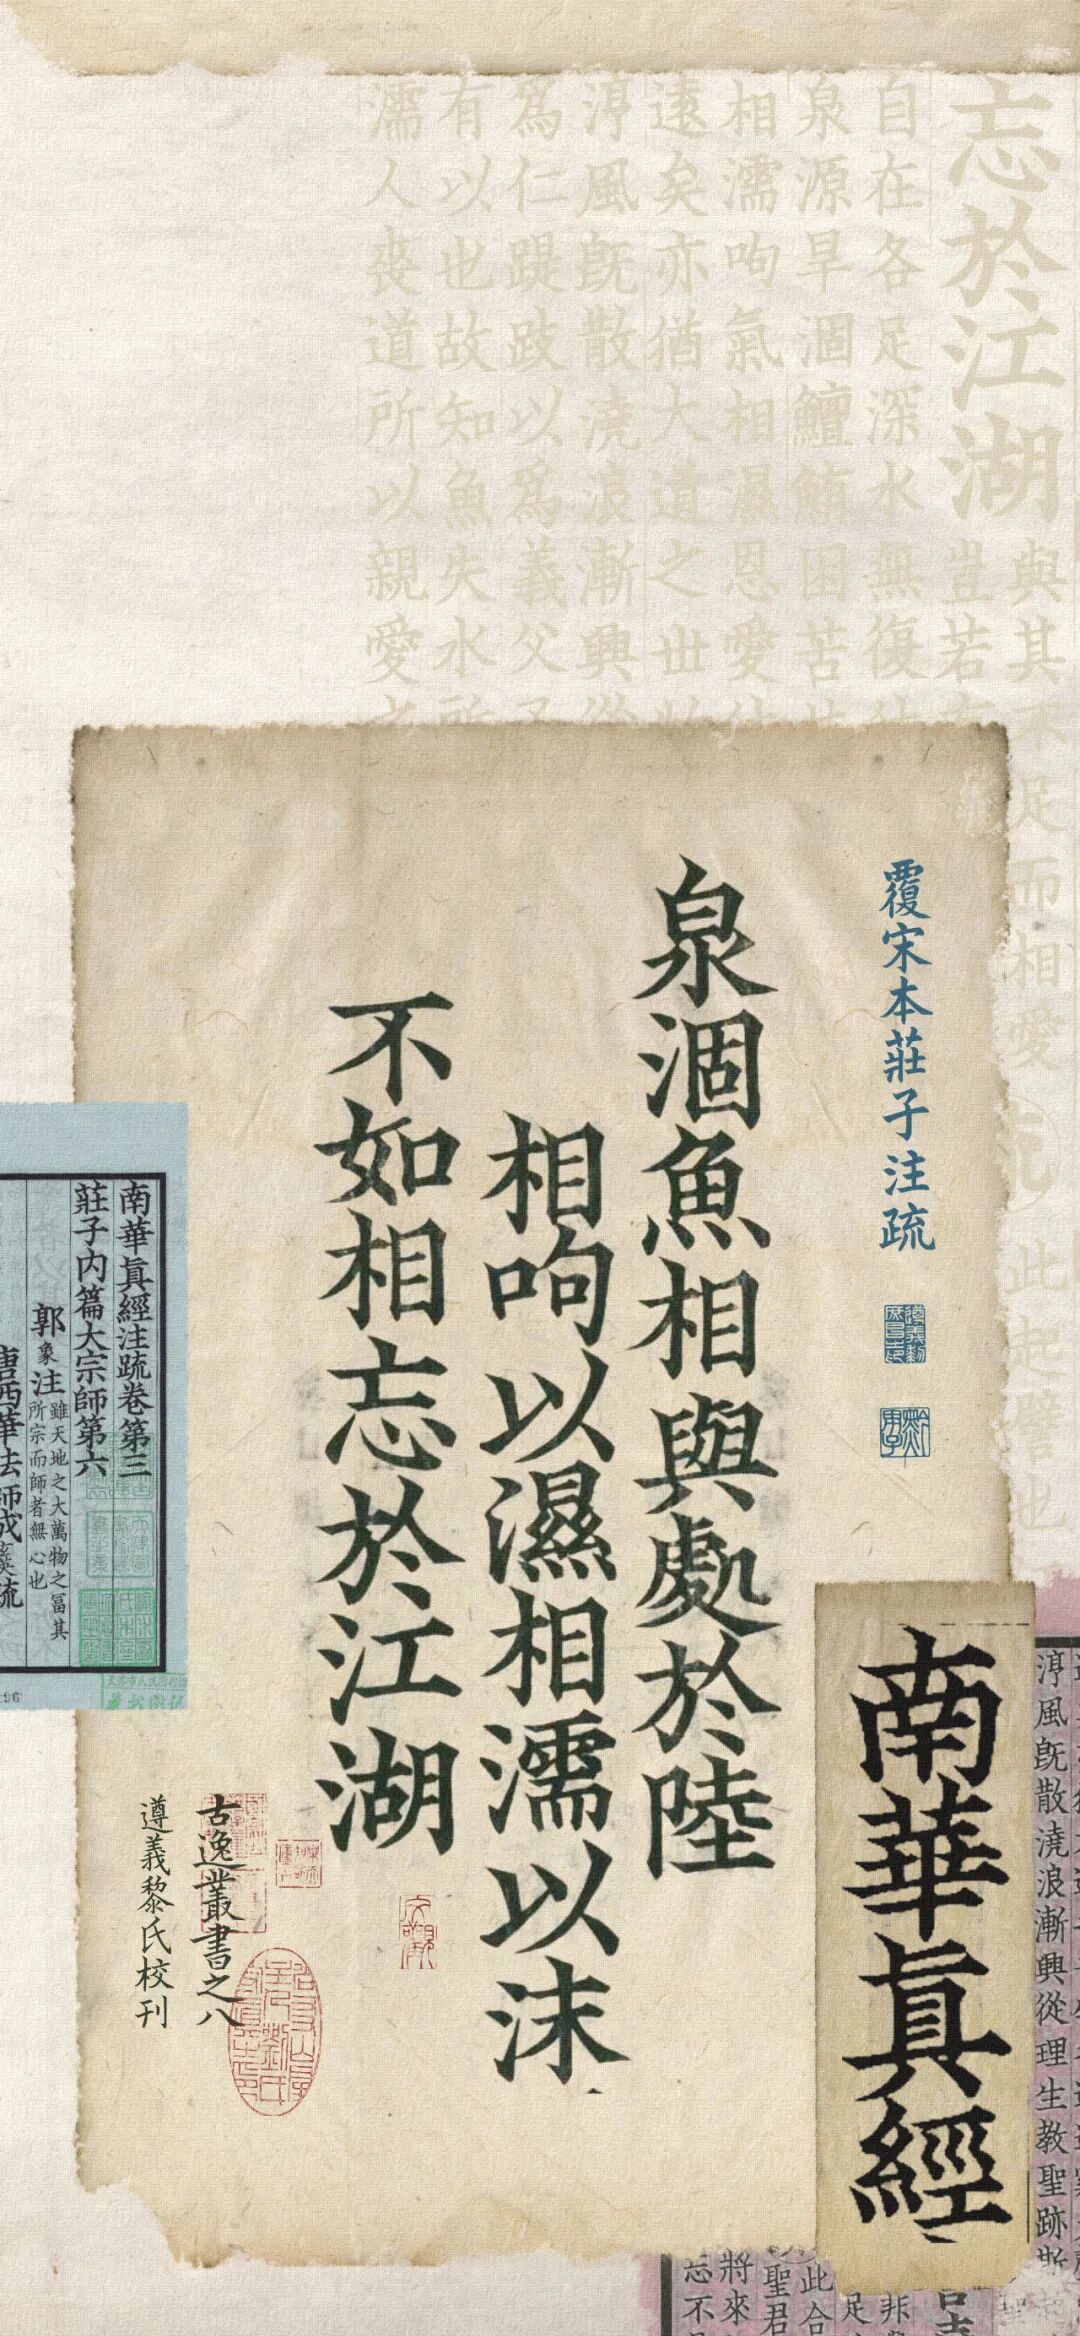 忘於江湖
與其不足而相愛
此起譬也
豈若
自在各足深水無復
泉源旱涸鱣鮪困苦
相濡呴氣相濕恩愛
遠矣亦猶大道之世
淳風旣散澆浪漸興從
爲仁踶跂以爲義父子
有以也故知魚失水所
濡人喪道所以親愛
覆宋本莊子注疏
泉涸魚相與處於陸
相呴以濕相濡以沫
不如相忘於江湖
南華眞經注疏卷第三
莊子內篇大宗師第六
郭象注
雖天地之大萬物之富其
所宗而師者無心也
唐西華法師成
疏
古逸叢書之八
遵義黎氏校刊
南華眞經
淳風旣散澆浪漸興從理生教聖跡斯
此合
聖君
將來
忘不